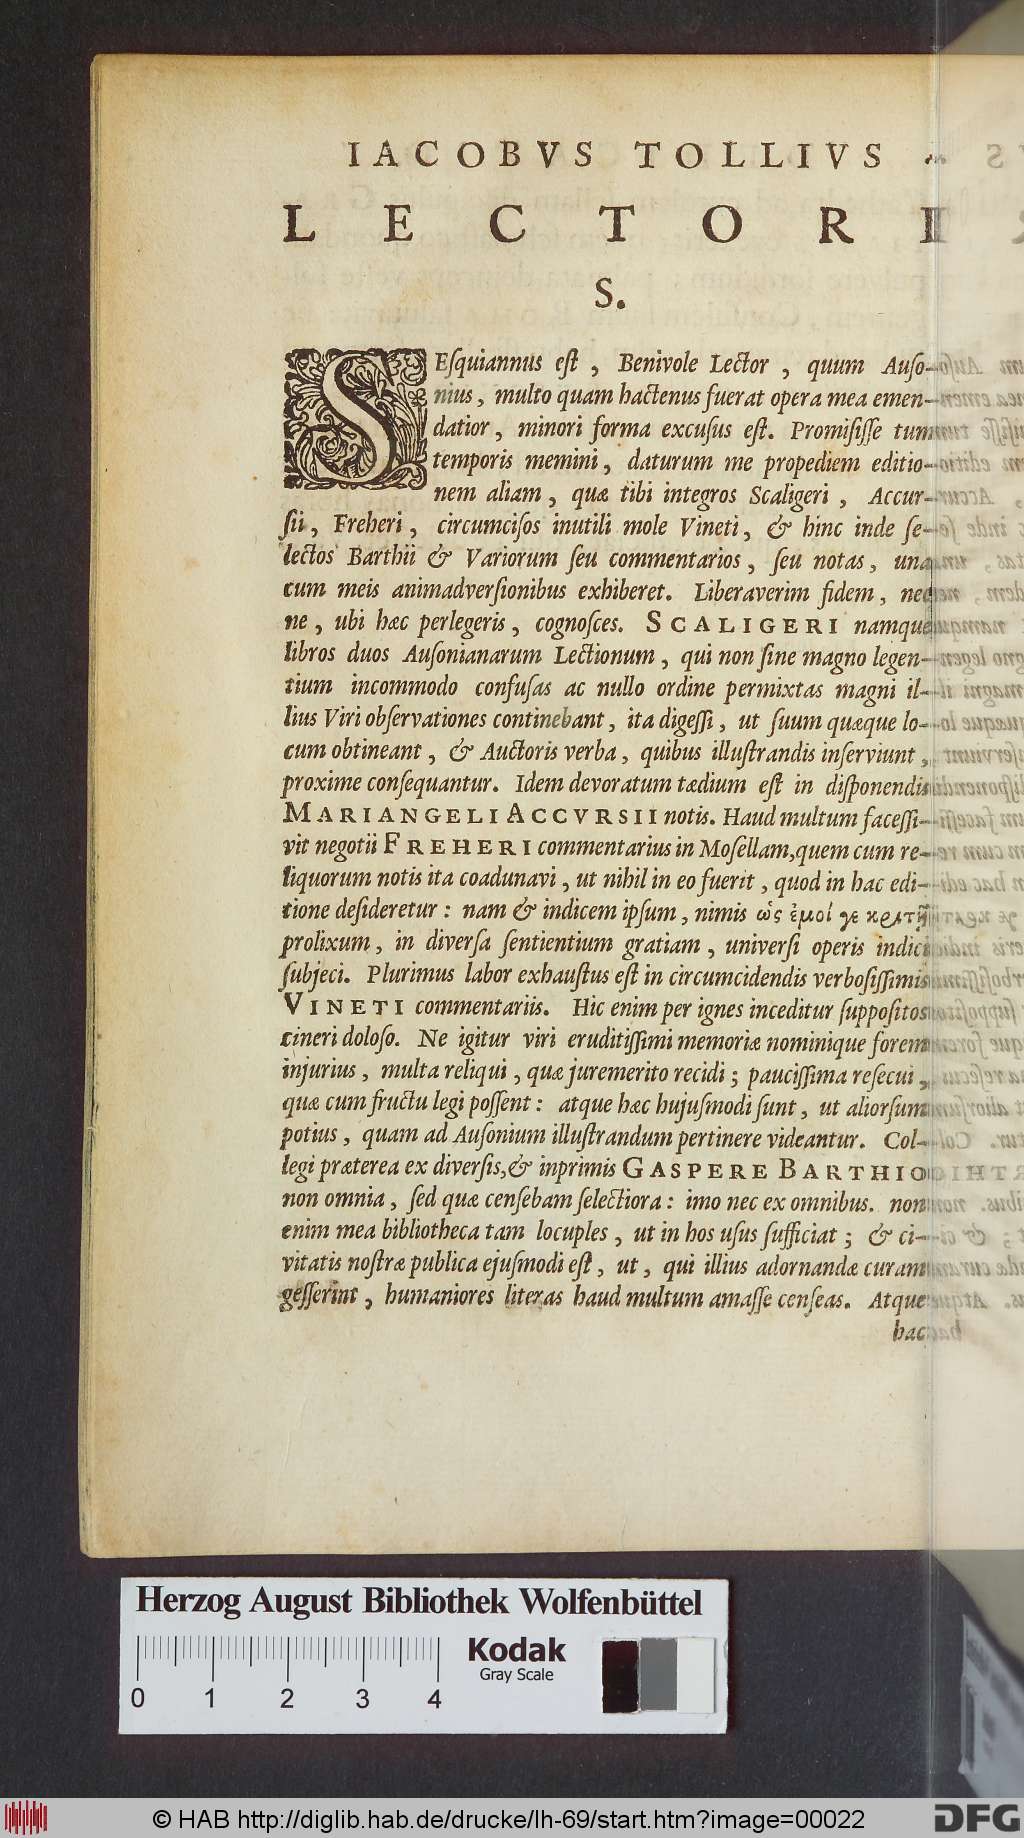 IACOBVS TOLLIVS
LECTORI
S.
SEſquiannus eſt, Benivole Lector, quum Auſo-
nius, multo quam hactenus fuerat opera mea emen-
datior, minori forma excuſus eſt. Promiſiſſe tum
temporis memini, daturum me propediem editio-
nem aliam, quæ tibi integros Scaligeri, Accur-
ſii, Freheri, circumciſos inutili mole Vineti, & hinc inde ſe-
lectos Barthii & Variorum ſeu commentarios, ſeu notas, una
cum meis animadverſionibus exhiberet. Liberaverim fidem, nec
ne, ubi hæc perlegeris, cognoſces. SCALIGERI namque
libros duos Auſonianarum Lectionum, qui non ſine magno legen-
tium incommodo confuſas ac nullo ordine permixtas magni il-
lius Viri obſervationes continebant, ita digeſſi, ut ſuum quæque lo-
cum obtineant, & Auctoris verba, quibus illuſtrandis inſerviunt,
proxime conſequantur. Idem devoratum tædium eſt in diſponendis
MARIANGELI ACCVRSII notis. Haud multum faceſſi-
vit negotii FREHERI commentarius in Moſellam, quem cum re-
liquorum notis ita coadunavi, ut nihil in eo fuerit, quod in hac edi-
tione deſideretur: nam & indicem ipſum, nimis ὡς ἐμοί γε κριτῇ
prolixum, in diverſa ſentientium gratiam, univerſi operis indici
ſubjeci. Plurimus labor exhauſtus eſt in circumcidendis verboſiſſimis
VINETI commentariis. Hic enim per ignes inceditur ſuppoſitos
cineri doloſo. Ne igitur viri eruditiſſimi memoriæ nominique forem
injurius, multa reliqui, quæ juremerito recidi; pauciſſima reſecui,
quæ cum fructu legi poſſent: atque hæc hujuſmodi ſunt, ut aliorſum
potius, quam ad Auſonium illuſtrandum pertinere videantur. Col-
legi præterea ex diverſis, & inprimis GASPERE BARTHIO
non omnia, ſed quæ cenſebam ſelectiora: imo nec ex omnibus. non
enim mea bibliotheca tam locuples, ut in hos uſus ſufficiat; & ci-
vitatis noſtræ publica ejuſmodi eſt, ut, qui illius adornandæ curam
geſſerint, humaniores literas haud multum amaſſe cenſeas. Atque
hac
Herzog August Bibliothek Wolfenbüttel
Kodak
Gray Scale
0 1 2 3 4
© HAB http://diglib.hab.de/drucke/lh-69/start.htm?image=00022
DFG